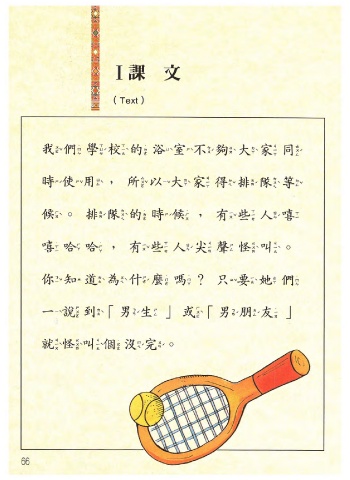 I課 文
(Text)
我們學校的浴室不夠大家同
時使用，所以大家得排隊等
候。排隊的時候，有些人嘻
嘻哈哈，有些人尖聲怪叫。
你知道為什麼嗎？只要她們
一說到「男生」或「男朋友」
就怪叫個沒完。
66